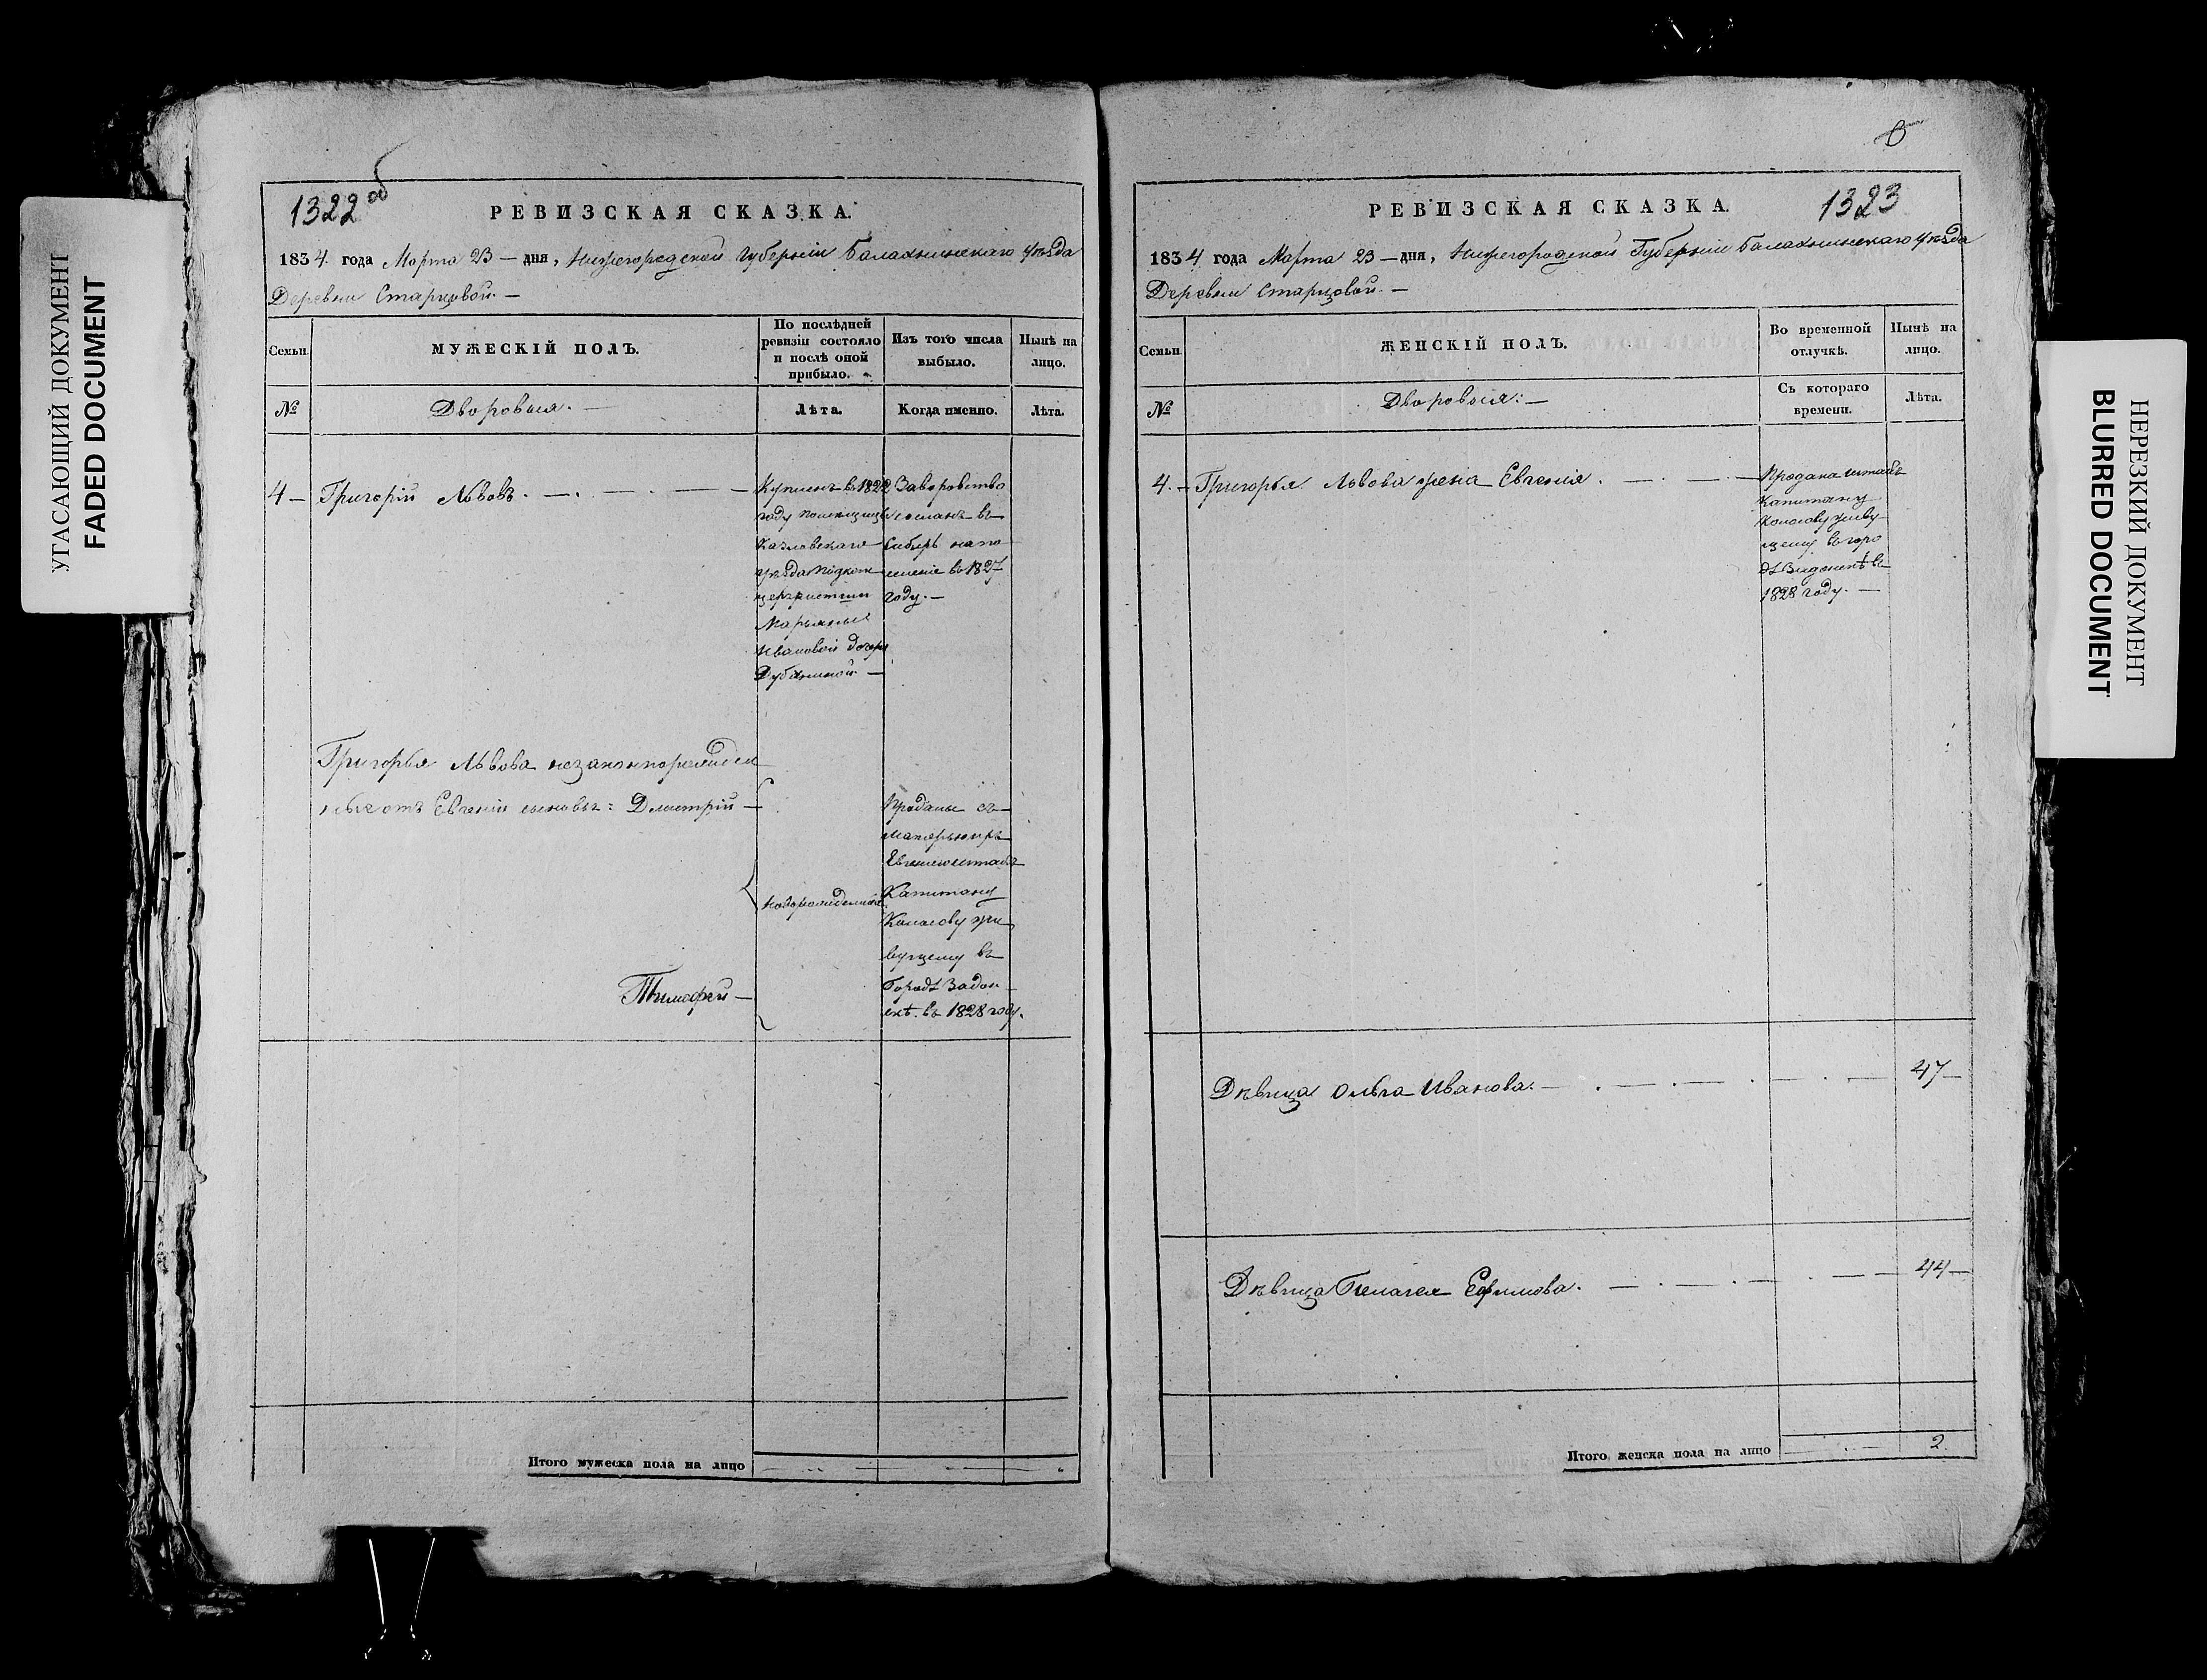 УГАСАЮЩИЙ ДОКУМЕНТ
FADED DOCUMENT
1322 об
РЕВИЗСКАЯ СКАЗКА.
1834. года Марта 23 — дня, Нижегородской Губернии Балахнинскаго уѣзда
Деревни Старцовой. —
Семьи
МУЖЕСКІЙ ПОЛЪ.
По послѣдней
ревизіи состояло
и послѣ оной
прибыло.
Изъ того числа
выбыло.
Нынѣ на
лицо.
№
Дворовыя. —
Лѣта.
Когда именно.
Лѣта.
4 — Григорій Львовъ. —
Купленъ в 1822
году помещицы
Казловскаго
уѣзда
Марьяны
Ивановой дочери
Дубининой —
За воровство
сосланъ въ
Сибирь на по
селеніе въ 1827
году. —
Григорья Львова незаконнорожден
ныя отъ Евгеніи сыновья: Дмитрій —
Тимофей —
новорожденные
Проданы съ
матерью ихъ
Евгеніею штабъ
Капитану
жи
вущему въ
Городѣ Задон
скѣ. въ 1828 году.
Итого мужеска пола на лицо
1323
РЕВИЗСКАЯ СКАЗКА.
1834 года Марта 23 — дня, Нижегородской Губерніи Балахнинскаго уѣзда
Деревни Старцовой. —
Семьи
ЖЕНСКІЙ ПОЛЪ.
Во временной
отлучкѣ.
Нынѣ на
лицо.
№
Дворовыя: —
Съ котораго
времени.
Лѣта.
4. — Григорья Львова жена Евгенія. —
Продана штабъ
Капитану
живу
щему въ горо
дѣ въ
1828 году. —
Дѣвица Ольга Иванова. — 47 —
Дѣвица Пелагея Ефимова. — 44 —
Итого женска пола на лицо 2.
НЕРЕЗКИЙ ДОКУМЕНТ
BLURRED DOCUMENT